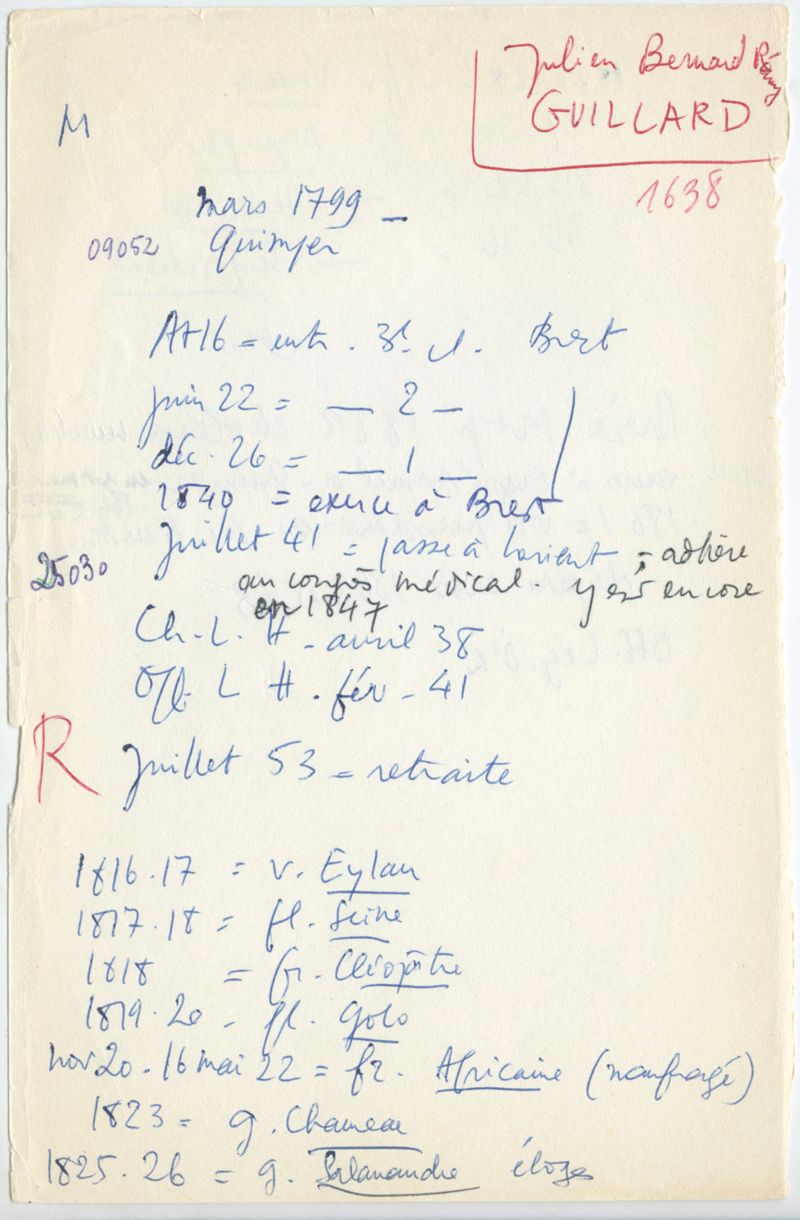 Julien Bernard Rémy
GUILLARD
M
1638
mars 1799 -
09052 Quimper
At 16 = entr. 3e cl. Brest
juin 22 = — 2 —
déc. 26 = — 1 —
1840 = exerce à Brest
Juillet 41 = passe à Lorient = adhère
25030
au congrès médical. y est encore
en 1847
Ch. L. H - avril 38
Off. L H. fév - 41
R Juillet 53 = retraite
1816.17 = v. Eylau
1817.18 = fl. Seine
1818 = fr. Cléopâtre
1819.20 - fl. Golo
nov 20 - 16 mai 22 = fr. Africaine (naufragé)
1823 = g. Chameau
1825.26 = g. Salamandre éloges